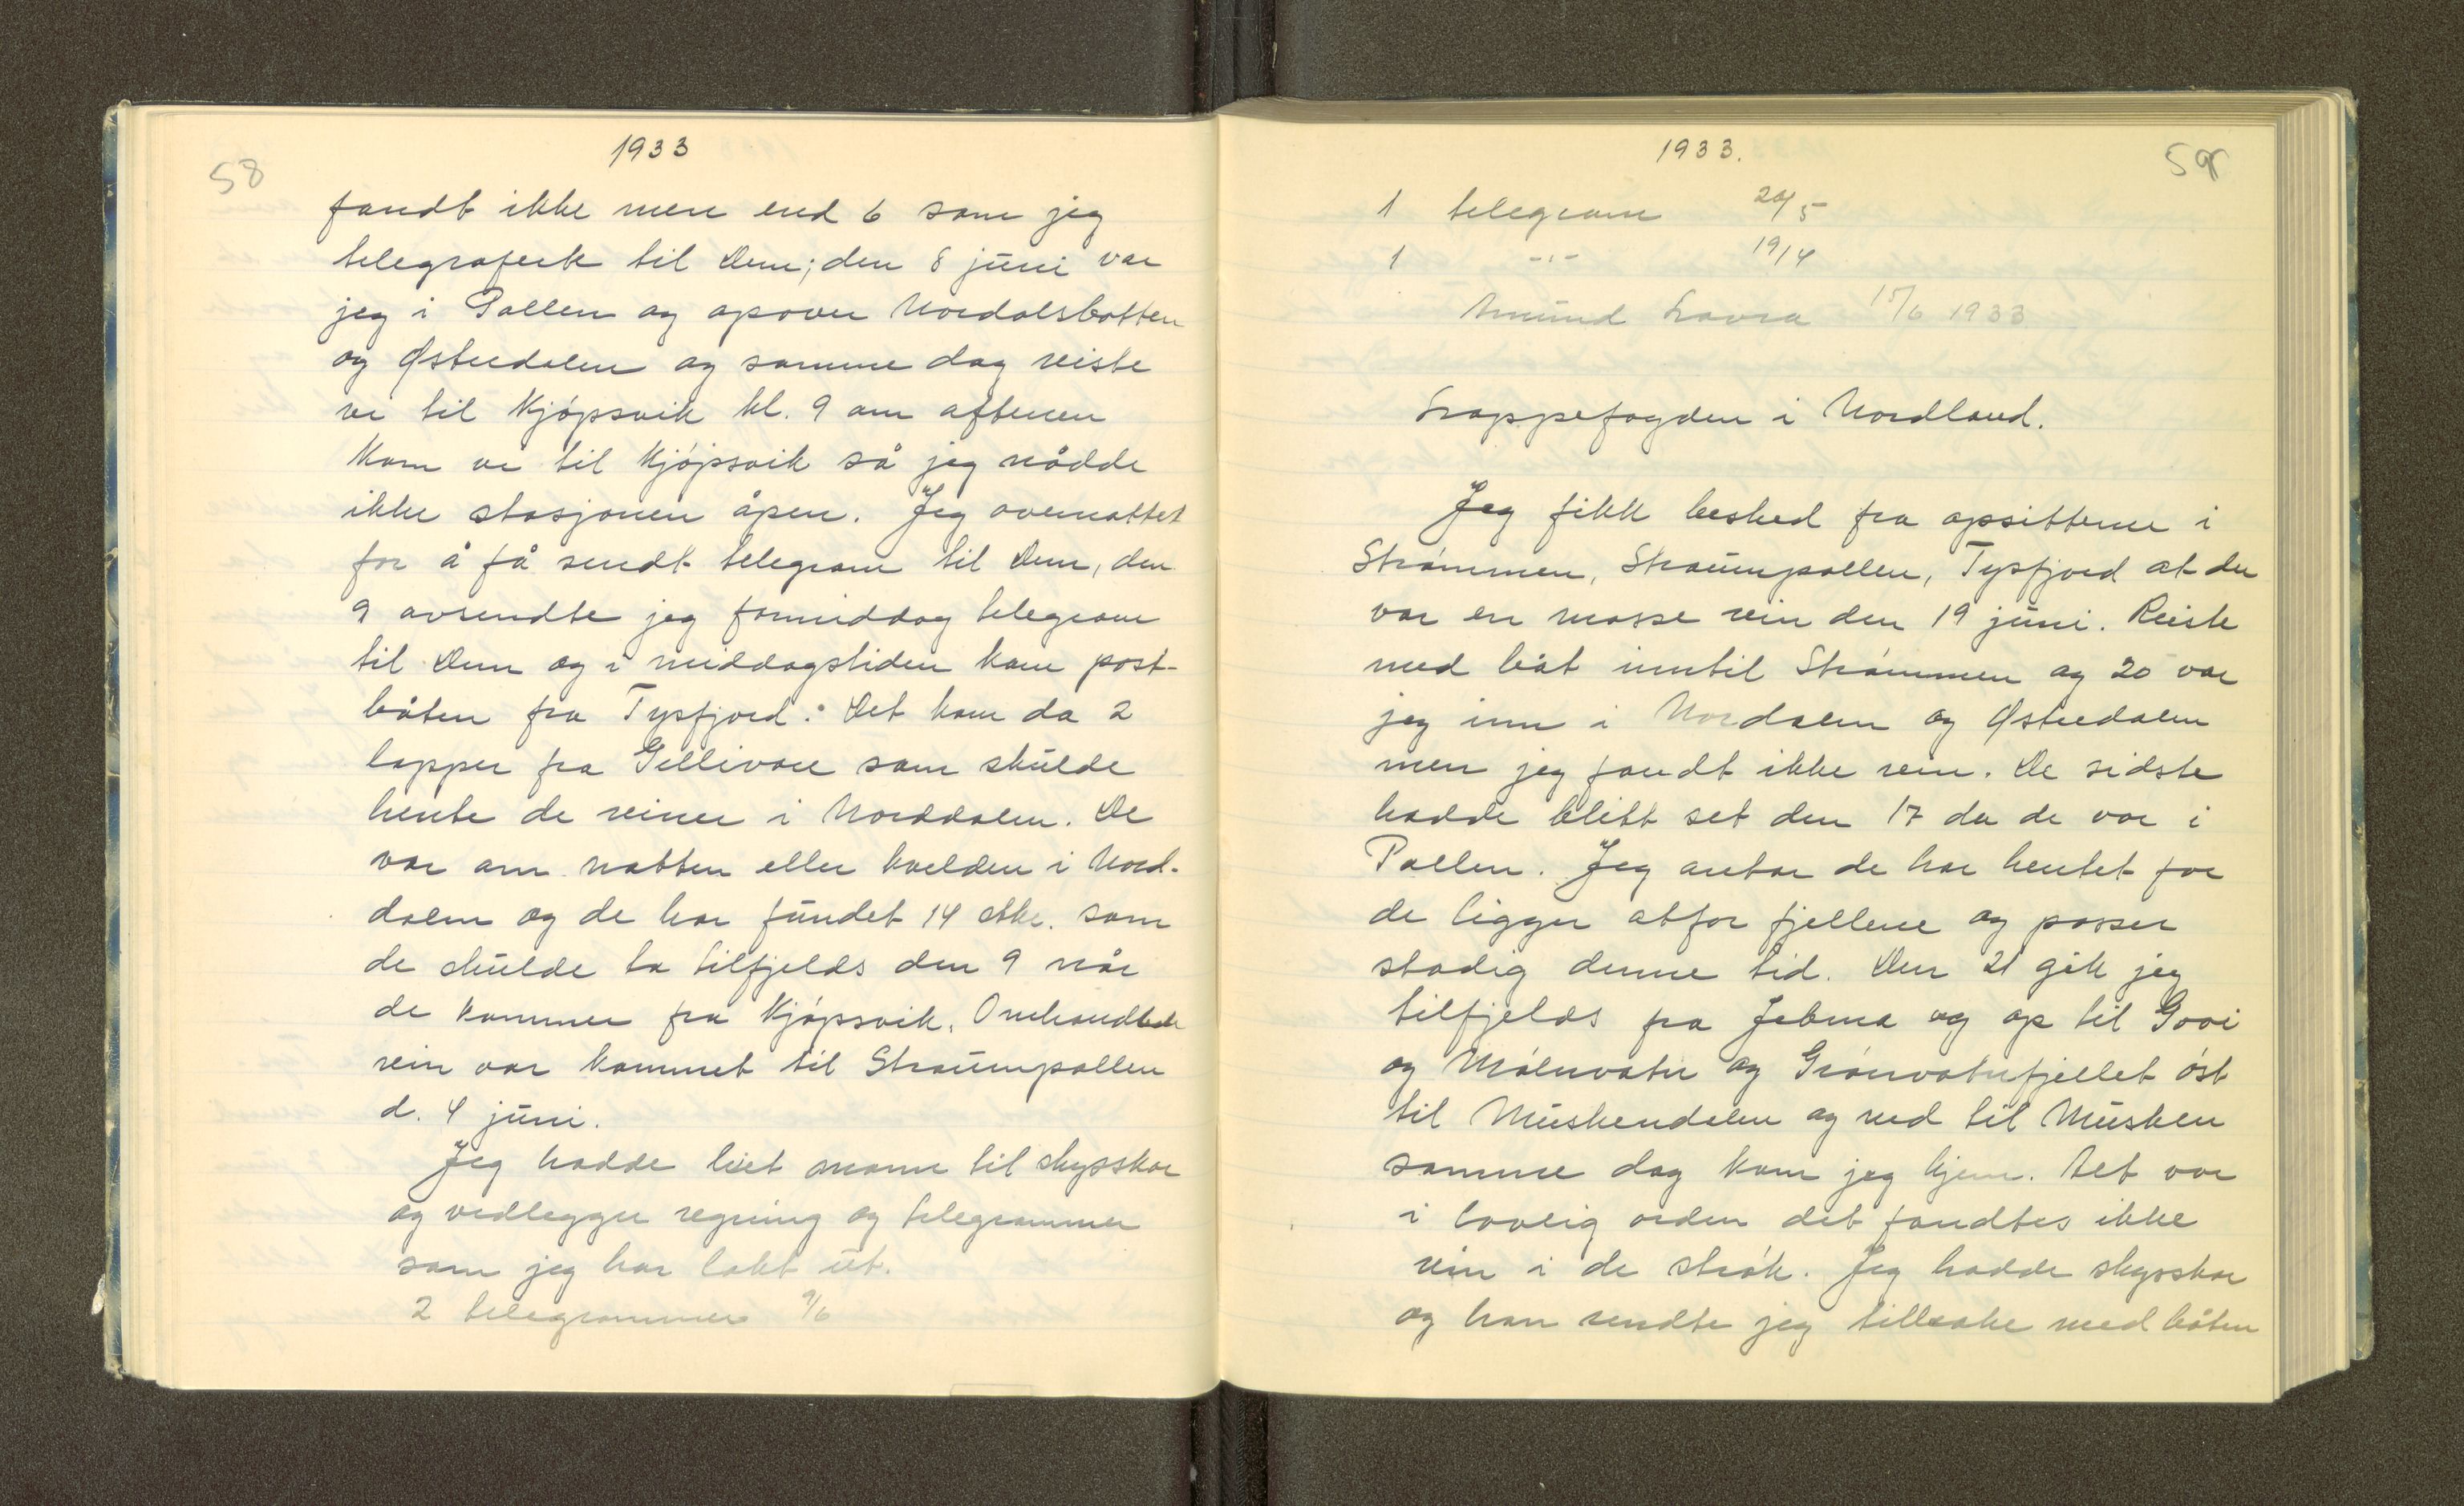 58
1933
fandt ikke mere end 6 som jeg
telegraferte til Dem; den 8 juni var
jeg i Pollen og opover Nordalsbotten
og Østerdalen og samme dag reiste
vi til Kjøpsvik kl. 9 om aftenen
kom vi til Kjøpsvik så jeg nådde
ikke stasjonen åpen. Jeg overnattet
for å få sendt telegram til Dem, den
9 avsendte jeg formiddag telegram
til Dem og i middagstiden kom post-
båten fra Tysfjord. Det kom da 2
lapper fra Gellivare som skulde
hente de reiner i Norddalen. De
var om natten eller kvelden i Nord-
dalen og de har fundet 14 stkr. som
de skulde ta tilfjelds den 9 når
de kommer fra Kjøpsvik. Omhandlede
rein var kommet til Straumpollen
d. 4 juni.
Jeg hadde leiet mann til skysskar
og vedlegger regning og telegrammer
som jeg har lakt ut.
2 telegrammer 9/6
1933.
59
1 telegram 20/5
1 -"- 19/4
Amund Lavra 15/6 1933
Lappefogden i Nordland.
Jeg fikk besked fra opsitterne i
Strømmen, Straumpollen, Tysfjord at der
var en masse rein den 19 juni. Reiste
med båt inntil Strømmen og 20 var
jeg inn i Nordalen og Østerdalen
men jeg fandt ikke rein. De sidste
hadde blitt set den 17 da de var i
Pollen. Jeg antar de har hentet for
de ligger atfor fjellene og passer
stadig denne tid. Den 21 gik jeg
tilfjelds fra Jebma og op til Gooi
og Mølnvatn og Grønvatnfjellet øst
til Muskendalen og ned til Musken
samme dag kom jeg hjem. Det var
i lovlig orden det fandtes ikke
rein i de strøk. Jeg hadde skysskar
og han sendte jeg tilbake med båten